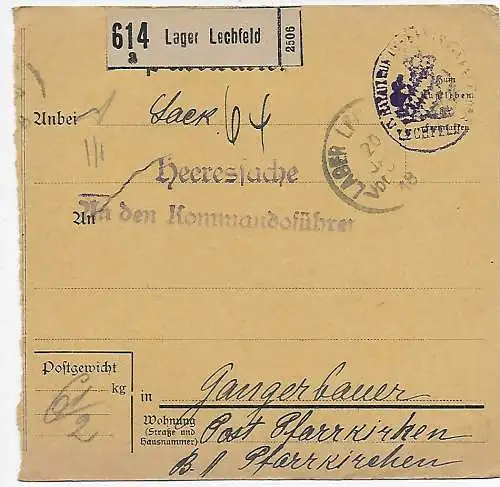 614 a Lager Lechfeld 2506
Zum
Aufkleben
LECHFELD
Anbei Sack 64
1/1
LAGER LE
20
18
Heeressache
An
An den Kommandoführer
Postgewicht
kg
6 1/2
in Gangerbauer
Wohnung
(Straße und
Hausnummer)
Post Pfarrkirchen
B. A Pfarrkirchen